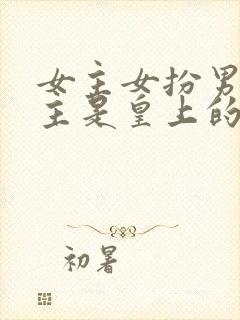 女主女扮男
主是皇上的
初暑